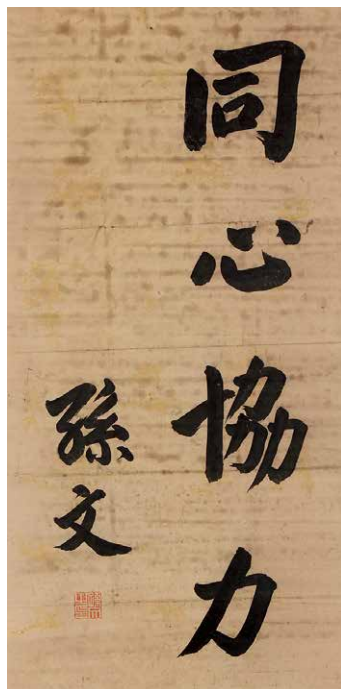 同心協力
孫文